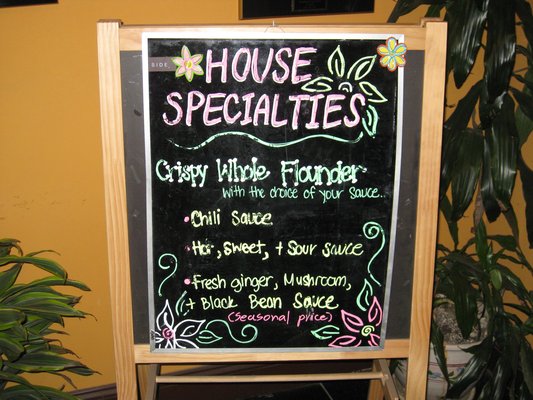 SIDE
HOUSE
SPECIALTIES
Crispy Whole Flounder
with the choice of your sauce...
• Chili Sauce
• Hot, Sweet, + Sour sauce
• Fresh ginger, Mushroom,
+ Black Bean Sauce
(seasonal price)